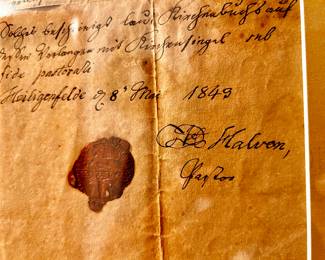 Solches bescheinigt laut Kirchenbuchs auf
dessen Verlangen mit Kirchensiegel sub
fide pastorali
Heiligenfelde d. 8t Mai 1843
Halven,
Pastor